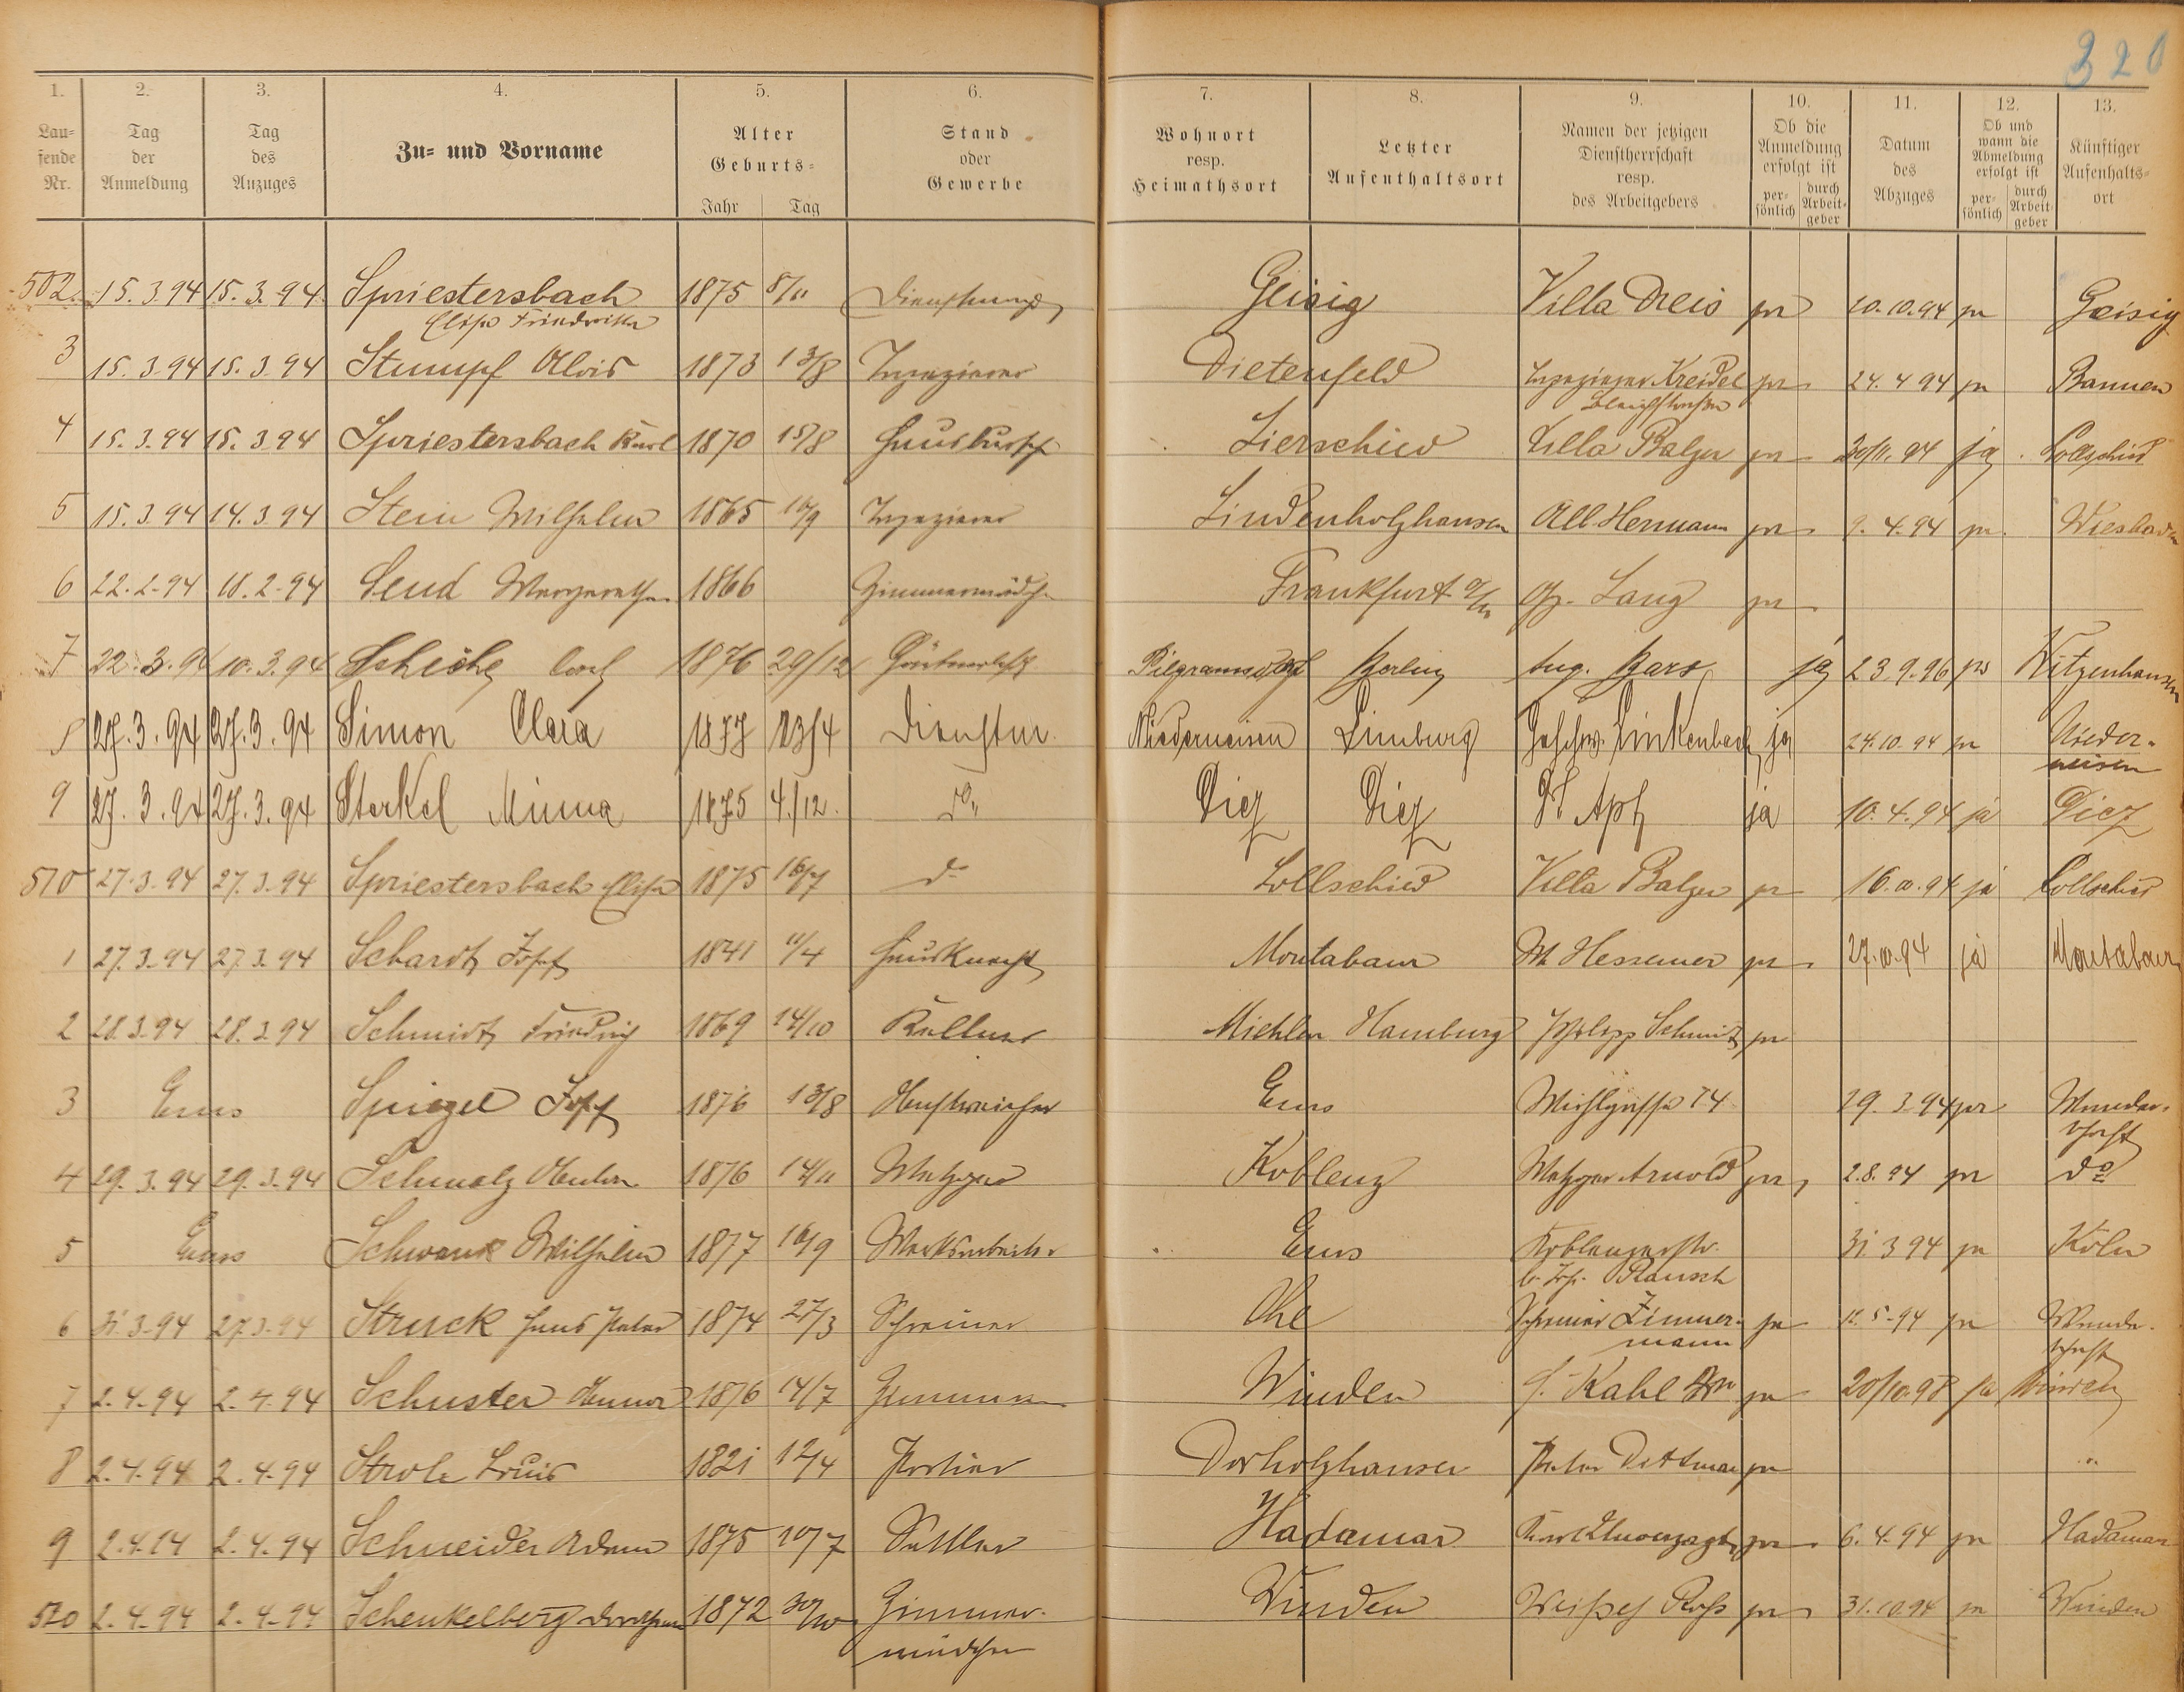 320
1. 2. 3. 4. 5. 6. 7. 8. 9. 10. 11. 12. 13.
Lau-
fende
Nr.
Tag
der
Anmeldung
Tag
des
Anzuges
Zu- und Vorname
Alter
Geburts-
Jahr Tag
Stand
oder
Gewerbe
Wohnort
resp.
Heimathsort
Letzter
Aufenthaltsort
Namen der jetzigen
Dienstherrschaft
resp.
des Arbeitgebers
Ob die
Anmeldung
erfolgt ist
per-
sönlich
durch
Arbeit-
geber
Datum
des
Abzuges
Ob und
wann die
Abmeldung
erfolgt ist
per-
sönlich
durch
Arbeit-
geber
Künftiger
Aufenhalts-
ort
502. 15.3.94 15.3.94 Spriestersbach 1875 8/11 Geisig Villa Dreis pr 20.10.94 pr Geisig
Elise Friedricke
3 15.3.94 15.3.94 Stumpf Alois 1873 13/8 Tapezierer Dietenfeld Tapezierer Kreidel pr 24.4 94 pr
4 15.3.94 15.3 94 Spriestersbach Karl 1870 15/8 Hausbursch Lierschied Villa Balzer pr 20/11. 94 ja Lollschied
5 15.3.94 14.3 94 Stein Wilhelm 1865 Tapezierer Lindenholzhausen Alb Hermann pr 9. 4. 94 pr. Wiesbaden
6 22.2.94 18.2.94 Send Margarethe 1866 Zimmermädch. Frankfurt a/M Lang pr
7 22.3.94 10.3.94 1876 29/12 Pilgramsdorf Berlin Aug. Bars ja 23.9.96 ps Witzenhausen
8 27.3.94 27.3.94 Simon Clara 1877 23/4 Dienstm. Niederneisen Limburg Geschw. Linkenbach ja 24.10.94 pr Nieder-
neisen
9 27.3.94 27.3.94 Sterkel Minna 1875 4./12. do Diez Diez ja 10.4.94 ja Diez
510 27.3.94 27.3.94 Spriestersbach Elise 1875 16/7 do Lollschied Villa Balzer pr 16.10.94 ja Lollschied
1 27.3.94 27.3.94 Schardt Josef 1841 11/4 Hausknecht Montabaur W. Hessemer pr 27.10.94 ja Montabaur
2 28.3.94 28.3.94 Schmidt Friedrich 1869 14/10 Kellner Miehlen Hamburg Philipp Schmidt pr
3 Ems Spiegel Josef 1876 13/8 Ems 74 29.3.94 pr Wander-
schaft
4 29.3.94 29.3.94 Schmalz Anton 1876 14/11 Metzger Koblenz Metzger Arnold pr 2.8.94 pr do
5 Ems Schwank Wilhelm 1877 16/9 Werksarbeiter Ems Koblenzerstr. 31.3 94 pr Köln
b. Jos. Rausch
6 31.3.94 27.3.94 Struck Hans Peter 1874 27/3 Schreiner Ohe Schreiner Zimmer- pr 12.5.94 pr Wander-
mann schaft
7 2.4.94 2.4.94 Schuster 1876 14/7 Winden Kahl pr 20/10.98 ja Winden
8 2.4.94 2.4.94 Louis 1821 12/4 Portier Dorholzhausen Peter Dittmar pr "
9 2.4.14 2.4.94 Schneider Adam 1875 10/7 Sattler Hadamar pr 6.4.94 pr Hadamar
520 2.4.94 2.4.94 Schenkelberg Dorothea 1872 30/10 Zimmer- Winden Weißes Roß pr 31.10.94 pr Winden
mädchen